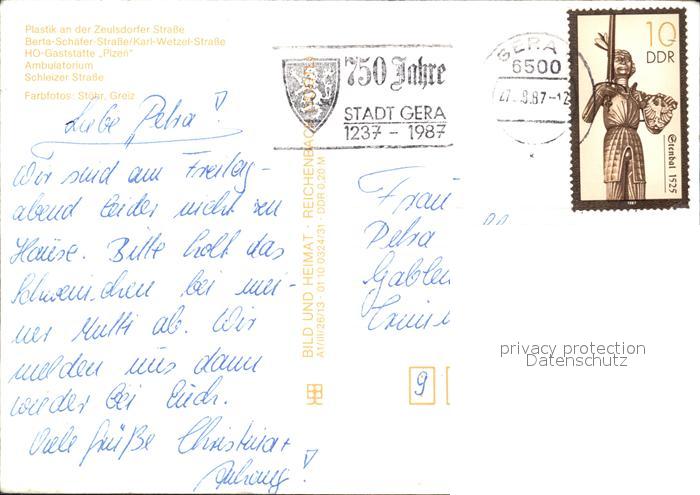 Plastik an der Zeulsdorfer Straße
Berta-Schäfer-Straße/Karl-Wetzel-Straße
HO-Gaststätte „Plzeň"
Ambulatorium
Schleizer Straße
Farbfotos: Stöhr, Greiz
750 Jahre
STADT GERA
1237 - 1987
GERA
6500
10
DDR
Stendal 1525
Liebe Petra!
Wir sind am Freitag-
abend leider nicht zu
Hause. Bitte holt das
Schweinchen bei mei-
ner Mutti ab. Wir
melden uns dann
wieder bei Euch.
Viele Grüße Christina +
Anhang!
BILD UND HEIMAT · REICHENBACH
A1/III/26/13 01 10 0324/31 · DDR 0,20 M
Frau
Petra
9
privacy protection
Datenschutz